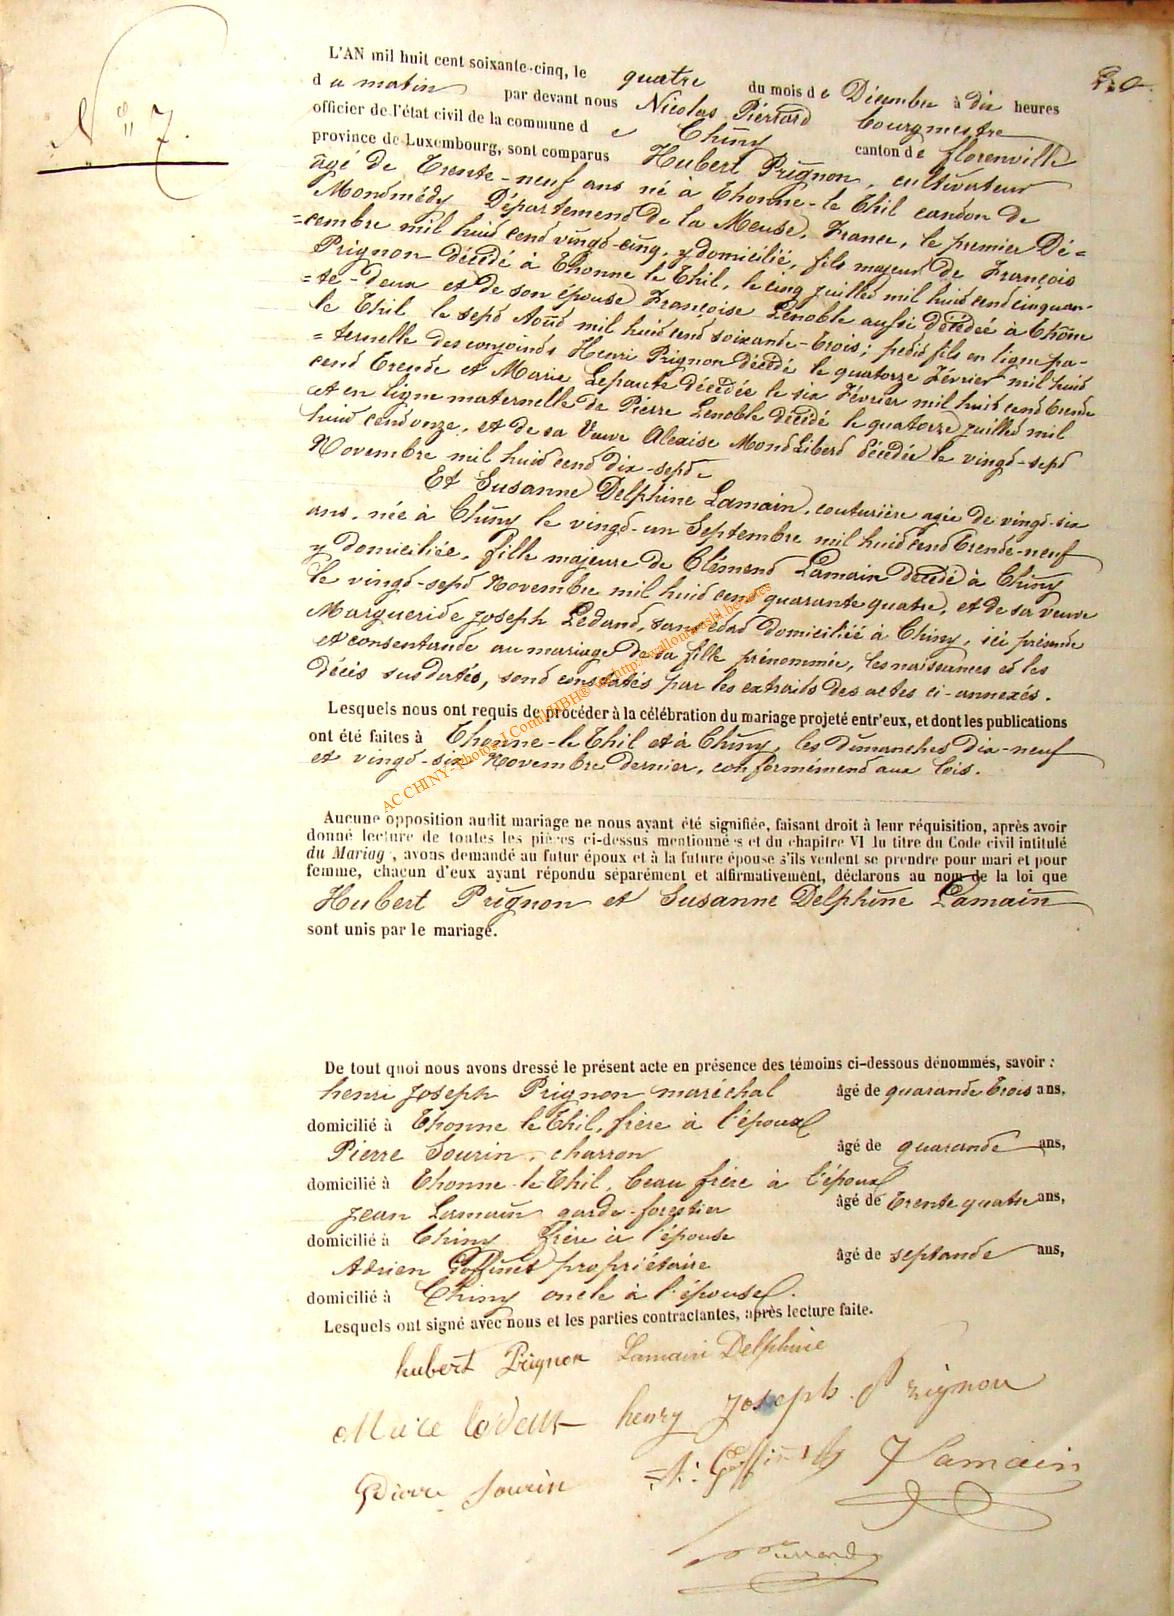 N° 7.
L'AN mil huit cent soixante-cinq, le quatre du mois de Décembre à dix heures
du matin par devant nous Nicolas Piérard bourgmestre
officier de l'état civil de la commune de Chiny canton de florenville
province de Luxembourg, sont comparus Hubert Prignon, cultivateur
âgé de Trente-neuf ans né à Thonne-le Thil canton de
Montmédy Département de la Meuse, France, le premier Dé=
=cembre mil huit cent vingt-cinq, y domicilié, fils majeur de François
Prignon décédé à Thonne le Thil, le cinq juillet mil huit cent cinquan-
=te-deux et de son épouse Françoise Lenoble aussi décédée à Thonne
le Thil le sept Août mil huit cent soixante-trois; petit fils en ligne pa-
=ternelle des conjoints Henri Prignon décédé le quatorze Février mil huit
cent Trente et Marie Lepaute décédée le six Février mil huit cent trente
et en ligne maternelle de Pierre Lenoble décédé le quatorze juillet mil
huit cent onze, et de sa Veuve Alexise Montlibert décédée le vingt-sept
Novembre mil huit cent dix-sept
Et Susanne Delphine Lamain, couturière agée de vingt-six
ans, née à Chiny le vingt-un Septembre mil huit cent trente-neuf
y domiciliée, fille majeure de Clément Lamain décédé à Chiny
le vingt-sept Novembre mil huit cent quarante quatre, et de sa veuve
Marguerite Joseph Ledant, sans état domiciliée à Chiny, ici présente
et consentante au mariage de sa fille prénommée, les naissances et les
décès susdatés, sont constatés par les extraits des actes ci-annexés.
Lesquels nous ont requis de procéder à la célébration du mariage projeté entr'eux, et dont les publications
ont été faites à Thonne-le Thil et à Chiny, les Dimanches Dix-neuf
et vingt-six Novembre dernier, conformément aux lois.
Aucune opposition audit mariage ne nous ayant été signifiée, faisant droit à leur réquisition, après avoir
donné lecture de toutes les pièces ci-dessus mentionnées et du chapitre VI du titre du Code civil intitulé
du Mariage, avons demandé au futur époux et à la future épouse s'ils veulent se prendre pour mari et pour
femme, chacun d'eux ayant répondu séparément et affirmativement, déclarons au nom de la loi que
Hubert Prignon et Susanne Delphine Lamain
sont unis par le mariage.
De tout quoi nous avons dressé le présent acte en présence des témoins ci-dessous dénommés, savoir :
henri Joseph Prignon maréchal âgé de quarante trois ans,
domicilié à Thonne le Thil, frère à l'époux
Pierre Sourin, charron âgé de quarante ans,
domicilié à Thonne-le-Thil, beau frère à l'époux
Jean Lamain garde-forestier âgé de trente quatre ans,
domicilié à Chiny frère à l'épouse
Adrien Goffinet propriétaire âgé de septante ans,
domicilié à Chiny oncle à l'épouse.
Lesquels ont signé avec nous et les parties contractantes, après lecture faite.
hubert Prignon Lamain Delphine
henry Joseph Prignon
Pierre Sourin A: Goffinet J Lamain